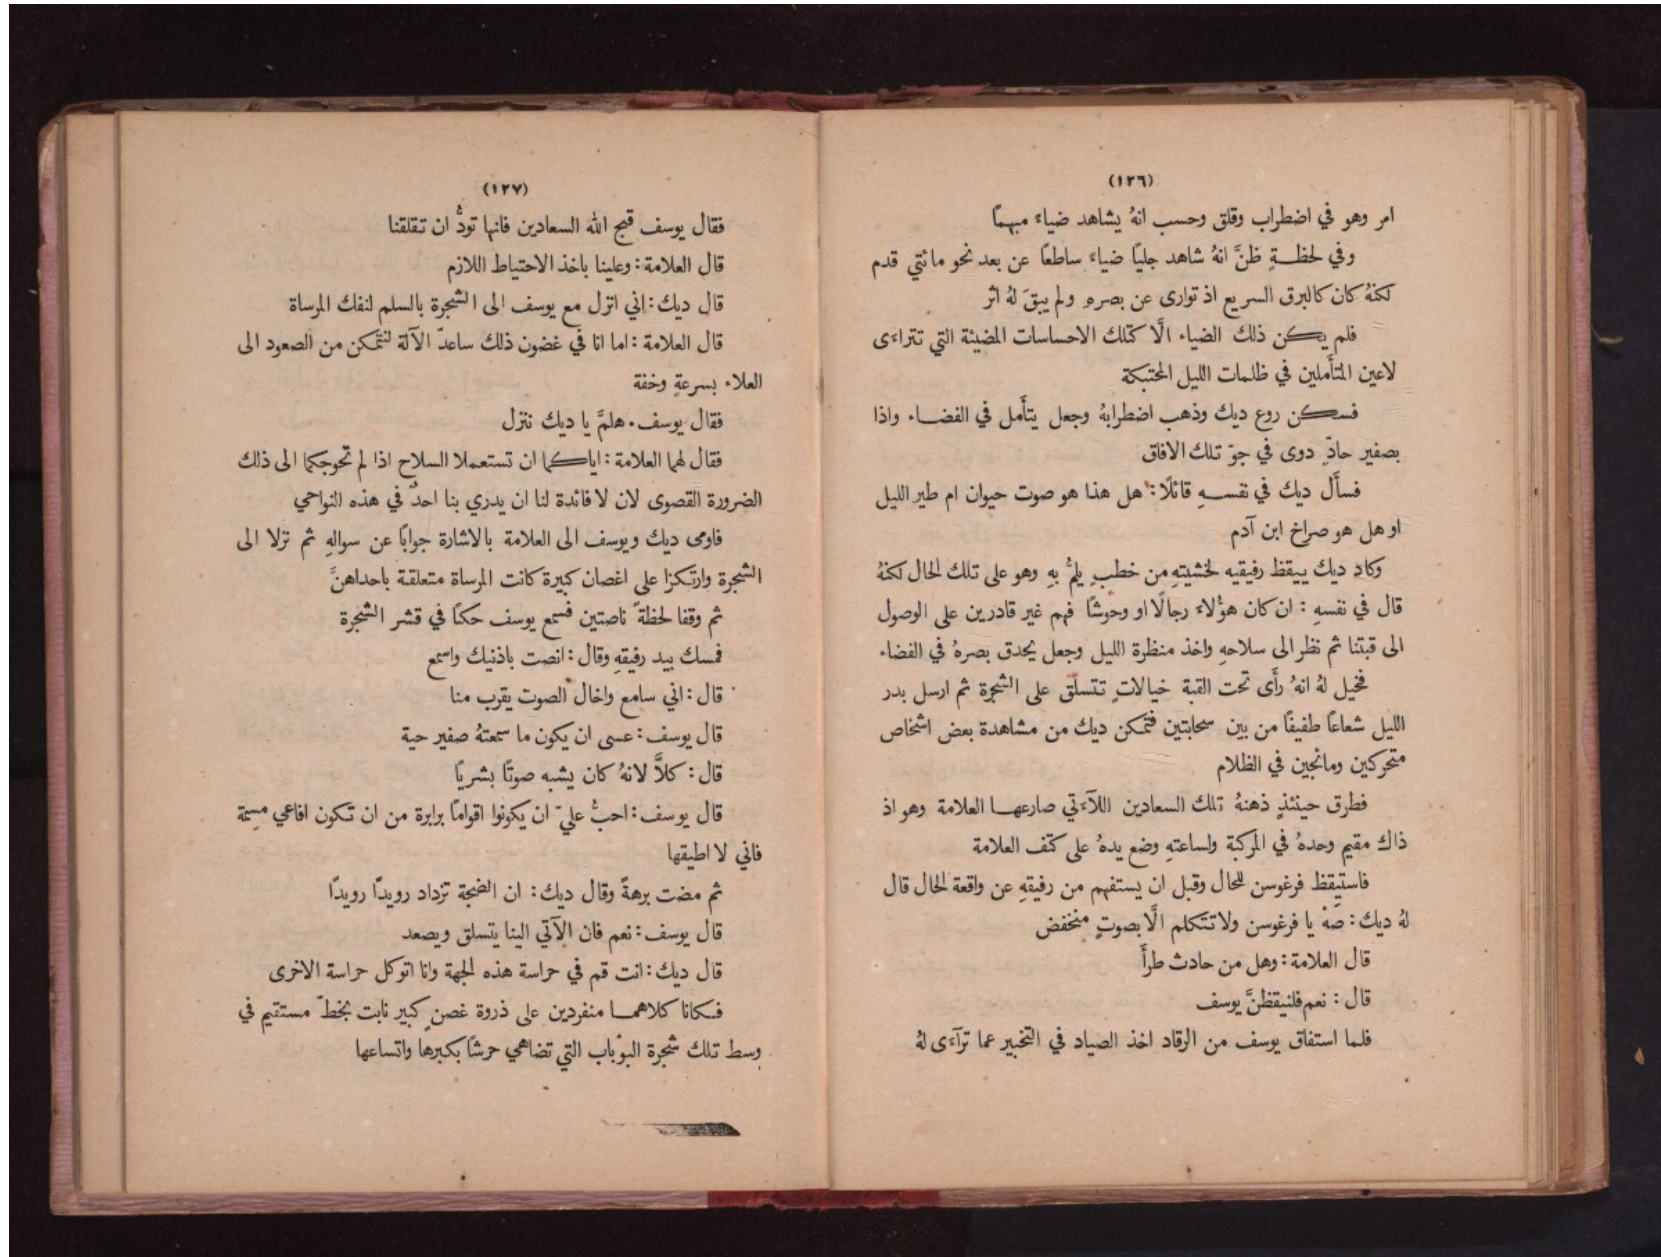 (١٢٦)
امر وهو في اضطراب وقلق وحسب انهُ يشاهد ضياءً مبهمًا
وفي لحظةٍ ظنَّ انهُ شاهد جليًا ضياءً ساطعًا عن بعد نحو مائتي قدم
لكنهُ كان كالبرق السريع اذ توارى عن بصرهِ ولم يبقَ لهُ اثر
فلم يكن ذلك الضياء الَّا كتلك الاحساسات المضيئة التي تتراءَى
لاعين المتأَملين في ظلمات الليل المحتبكة
فسكن روع ديك وذهب اضطرابهُ وجعل يتأَمل في الفضاء واذا
بصفير حادّ دوى في جوّ تلك الافاق
فسأَل ديك في نفسهِ قائلًا: هل هذا هو صوت حيوان ام طير الليل
او هل هو صراخ ابن آدم
وكاد ديك ييقظ رفيقيه لخشيتهِ من خطبٍ يلمُّ بهِ وهو على تلك الحال لكنهُ
قال في نفسهِ : ان كان هؤلاء رجالًا او وحوشًا فهم غير قادرين على الوصول
الى قبتنا ثم نظر الى سلاحهِ واخذ منظرة الليل وجعل يحدق بصرهُ في الفضاء
فخيل لهُ انهُ رأَى تحت القبة خيالاتٍ تتسلَّق على الشجرة ثم ارسل بدر
الليل شعاعًا طفيفًا من بين سحابتين فتمكن ديك من مشاهدة بعض اشخاص
متحركين ومائجين في الظلام
فطرق حينئذٍ ذهنهُ تلك السعادين اللآءتي صارعها العلامة وهو اذ
ذاك مقيم وحدهُ في المركبة ولساعتهِ وضع يدهُ على كتف العلامة
فاستيقظ فرغوسن للحال وقبل ان يستفهم من رفيقهِ عن واقعة الحال قال
لهُ ديك: صَهْ يا فرغوسن ولا تتكلم الَّا بصوتٍ منخفض
قال العلامة: وهل من حادث طرأَ
قال : نعم فلنيقظنَّ يوسف
فلما استفاق يوسف من الرقاد اخذ الصياد في التخبير عما ترآءَى لهُ
(١٢٧)
فقال يوسف قبح الله السعادين فانها تودُّ ان تقلقنا
قال العلامة: وعلينا باخذ الاحتياط اللازم
قال ديك: اني انزل مع يوسف الى الشجرة بالسلم لنفك المرساة
قال العلامة : اما انا في غضون ذلك ساعدّ الآلة لنتمكن من الصعود الى
العلاء بسرعةٍ وخفة
فقال يوسف. هلمَّ يا ديك ننزل
فقال لهما العلامة: اياكما ان تستعملا السلاح اذا لم تحوجكما الى ذلك
الضرورة القصوى لان لا فائدة لنا ان يدري بنا احدٌ في هذه النواحي
فاومى ديك ويوسف الى العلامة بالاشارة جوابًا عن سوالهِ ثم نزلا الى
الشجرة وارتكزا على اغصان كبيرة كانت المرساة متعلقة باحداهنَّ
ثم وقفا لحظةً ناصتين فسمع يوسف حكًا في قشر الشجرة
فمسك بيد رفيقهِ وقال: انصت باذنيك واسمع
قال: اني سامع واخال الصوت يقرب منا
قال يوسف: عسى ان يكون ما سمعتهُ صفير حية
قال: كلاَّ لانهُ كان يشبه صوتًا بشريًا
قال يوسف: احبُّ عليّ ان يكونوا اقوامًا برابرة من ان تكون افاعي مسمة
فاني لا اطيقها
ثم مضت برهةً وقال ديك: ان الضجة تزداد رويدًا رويدًا
قال يوسف: نعم فان الآتي الينا يتسلق ويصعد
قال ديك: انت قم في حراسة هذه الجهة وانا اتوكل حراسة الاخرى
فكانا كلاهما منفردين على ذروة غصنٍ كبير نابت بخطّ مستقيم في
وسط تلك شجرة البوْباب التي تضاهي حرشًا بكبرها واتساعها